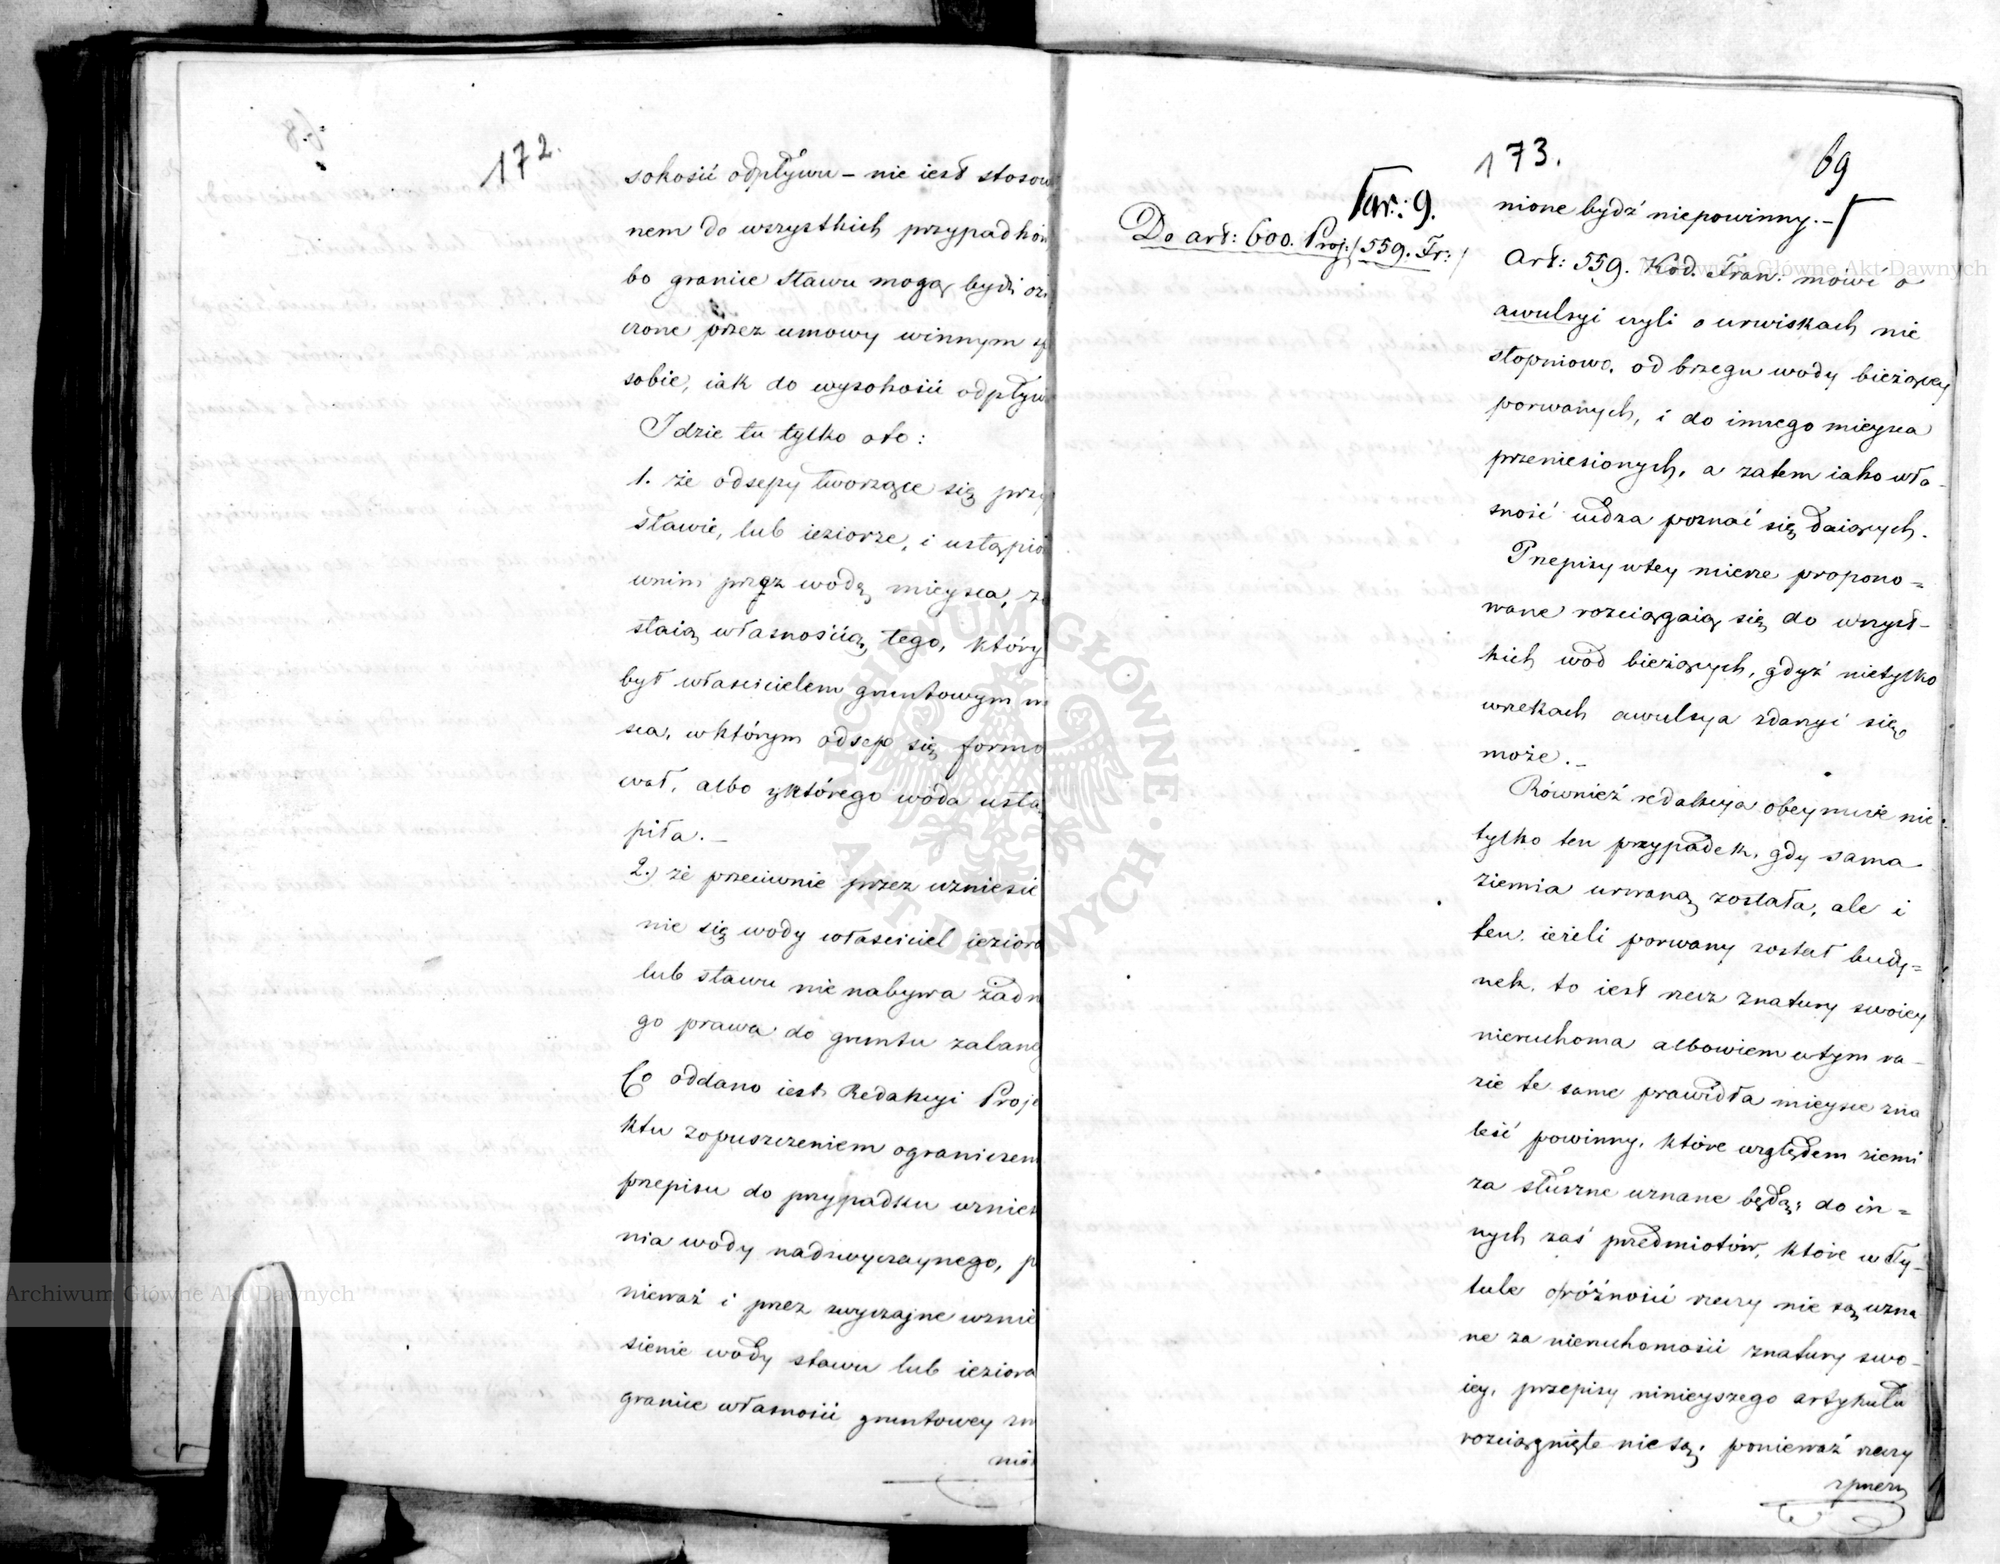 172.
sokości odpływu – nie iest stosow
nem do wszystkich przypadków
bo granice stawu mogą bydź ozn
czone przez umowy winnym sp
sobie, iak do wysokości odpływu
Idzie tu tylko oto:
1. że odsepy tworzące się przy
stawie, lub ieziorze, i ustąpio
wnim przez wodę, mieysca, zo
staią własnością tego, który
był właścicielem gruntowym m
sca, wktórym odsep się formo
wał, albo zktórego woda ustą
piła. –
2.) że przeciwnie przez wzniesie
nie się wody właściciel ieziora
lub stawu nie nabywa żadn
go prawa do gruntu zalane
Co oddano iest Redakcyi Proje
ktu zopuszczeniem ogranicze
przepisu do przypadku wznies
nia wody nadzwyczaynego, p
nieważ i przez zwyczajne wznie
sienie wody stawu lub ieziora
granice własności gruntowey zm
nio
173.
69
Tar.: 9.
Do art: 600. Proj: /559. Fr:/
nione bydź niepowinny. –
Art: 559. Kod. Fran: mówi o
awulsyi czyli o urwiskach nie
stopniowo, od brzegu wody bieżącey
porwanych, i do innego mieysca
przeniesionych, a zatem iako wła-
sność cudza poznać się daiących.
Przepisy wtey mierze propono=
wane rozciągaią się do wszyst-
kich wód bieżących, gdyż nietylko
wrzekach awulsya zdarzyć się
może. –
Również redakcya obeymuie nie
tylko ten przypadek, gdy sama
ziemia urwaną została, ale i
ten, ieżeli porwany został budy=
nek, to iest rzecz znatury swoiey
nieruchoma albowiem wtym ra-
zie te same prawidła mieysce zna
leść powinny, które względem ziemi
za słuszne uznane będą; do in=
nych zaś przedmiotów, które w Ty-
tule o różności rzeczy nie są uzna
ne za nieruchomości znatury swo-
iey, przepisy ninieyszego artykułu
rozciągnięte nie są, ponieważ rzeczy